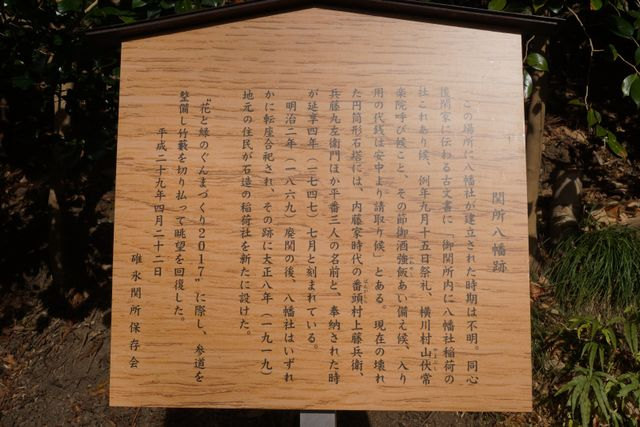 関所八幡跡
この場所に八幡社が建立された時期は不明。同心
後閑家に伝わる古文書に「御関所内に八幡社稲荷の
社これあり候、例年九月十五日祭礼、横川村山伏常
楽院呼び候こと、その節御酒強飯あい備え候、入り
用の代銭は安中より請取り候」とある。現在の壊れ
た円筒形石塔には、内藤家時代の番頭村上藤兵衛、
兵藤丸左衛門ほか平番三人の名前と、奉納された時
が延享四年（一七四七）七月と刻まれている。
明治二年（一八六九）廃関の後、八幡社はいずれ
かに転座合祀され、その跡に大正八年（一九一九）
地元の住民が石造の稲荷社を新たに設けた。
“花と緑のぐんまづくり2017”に際し、参道を
整備し竹藪を切り払って眺望を回復した。
平成二十九年四月二十二日
碓氷関所保存会